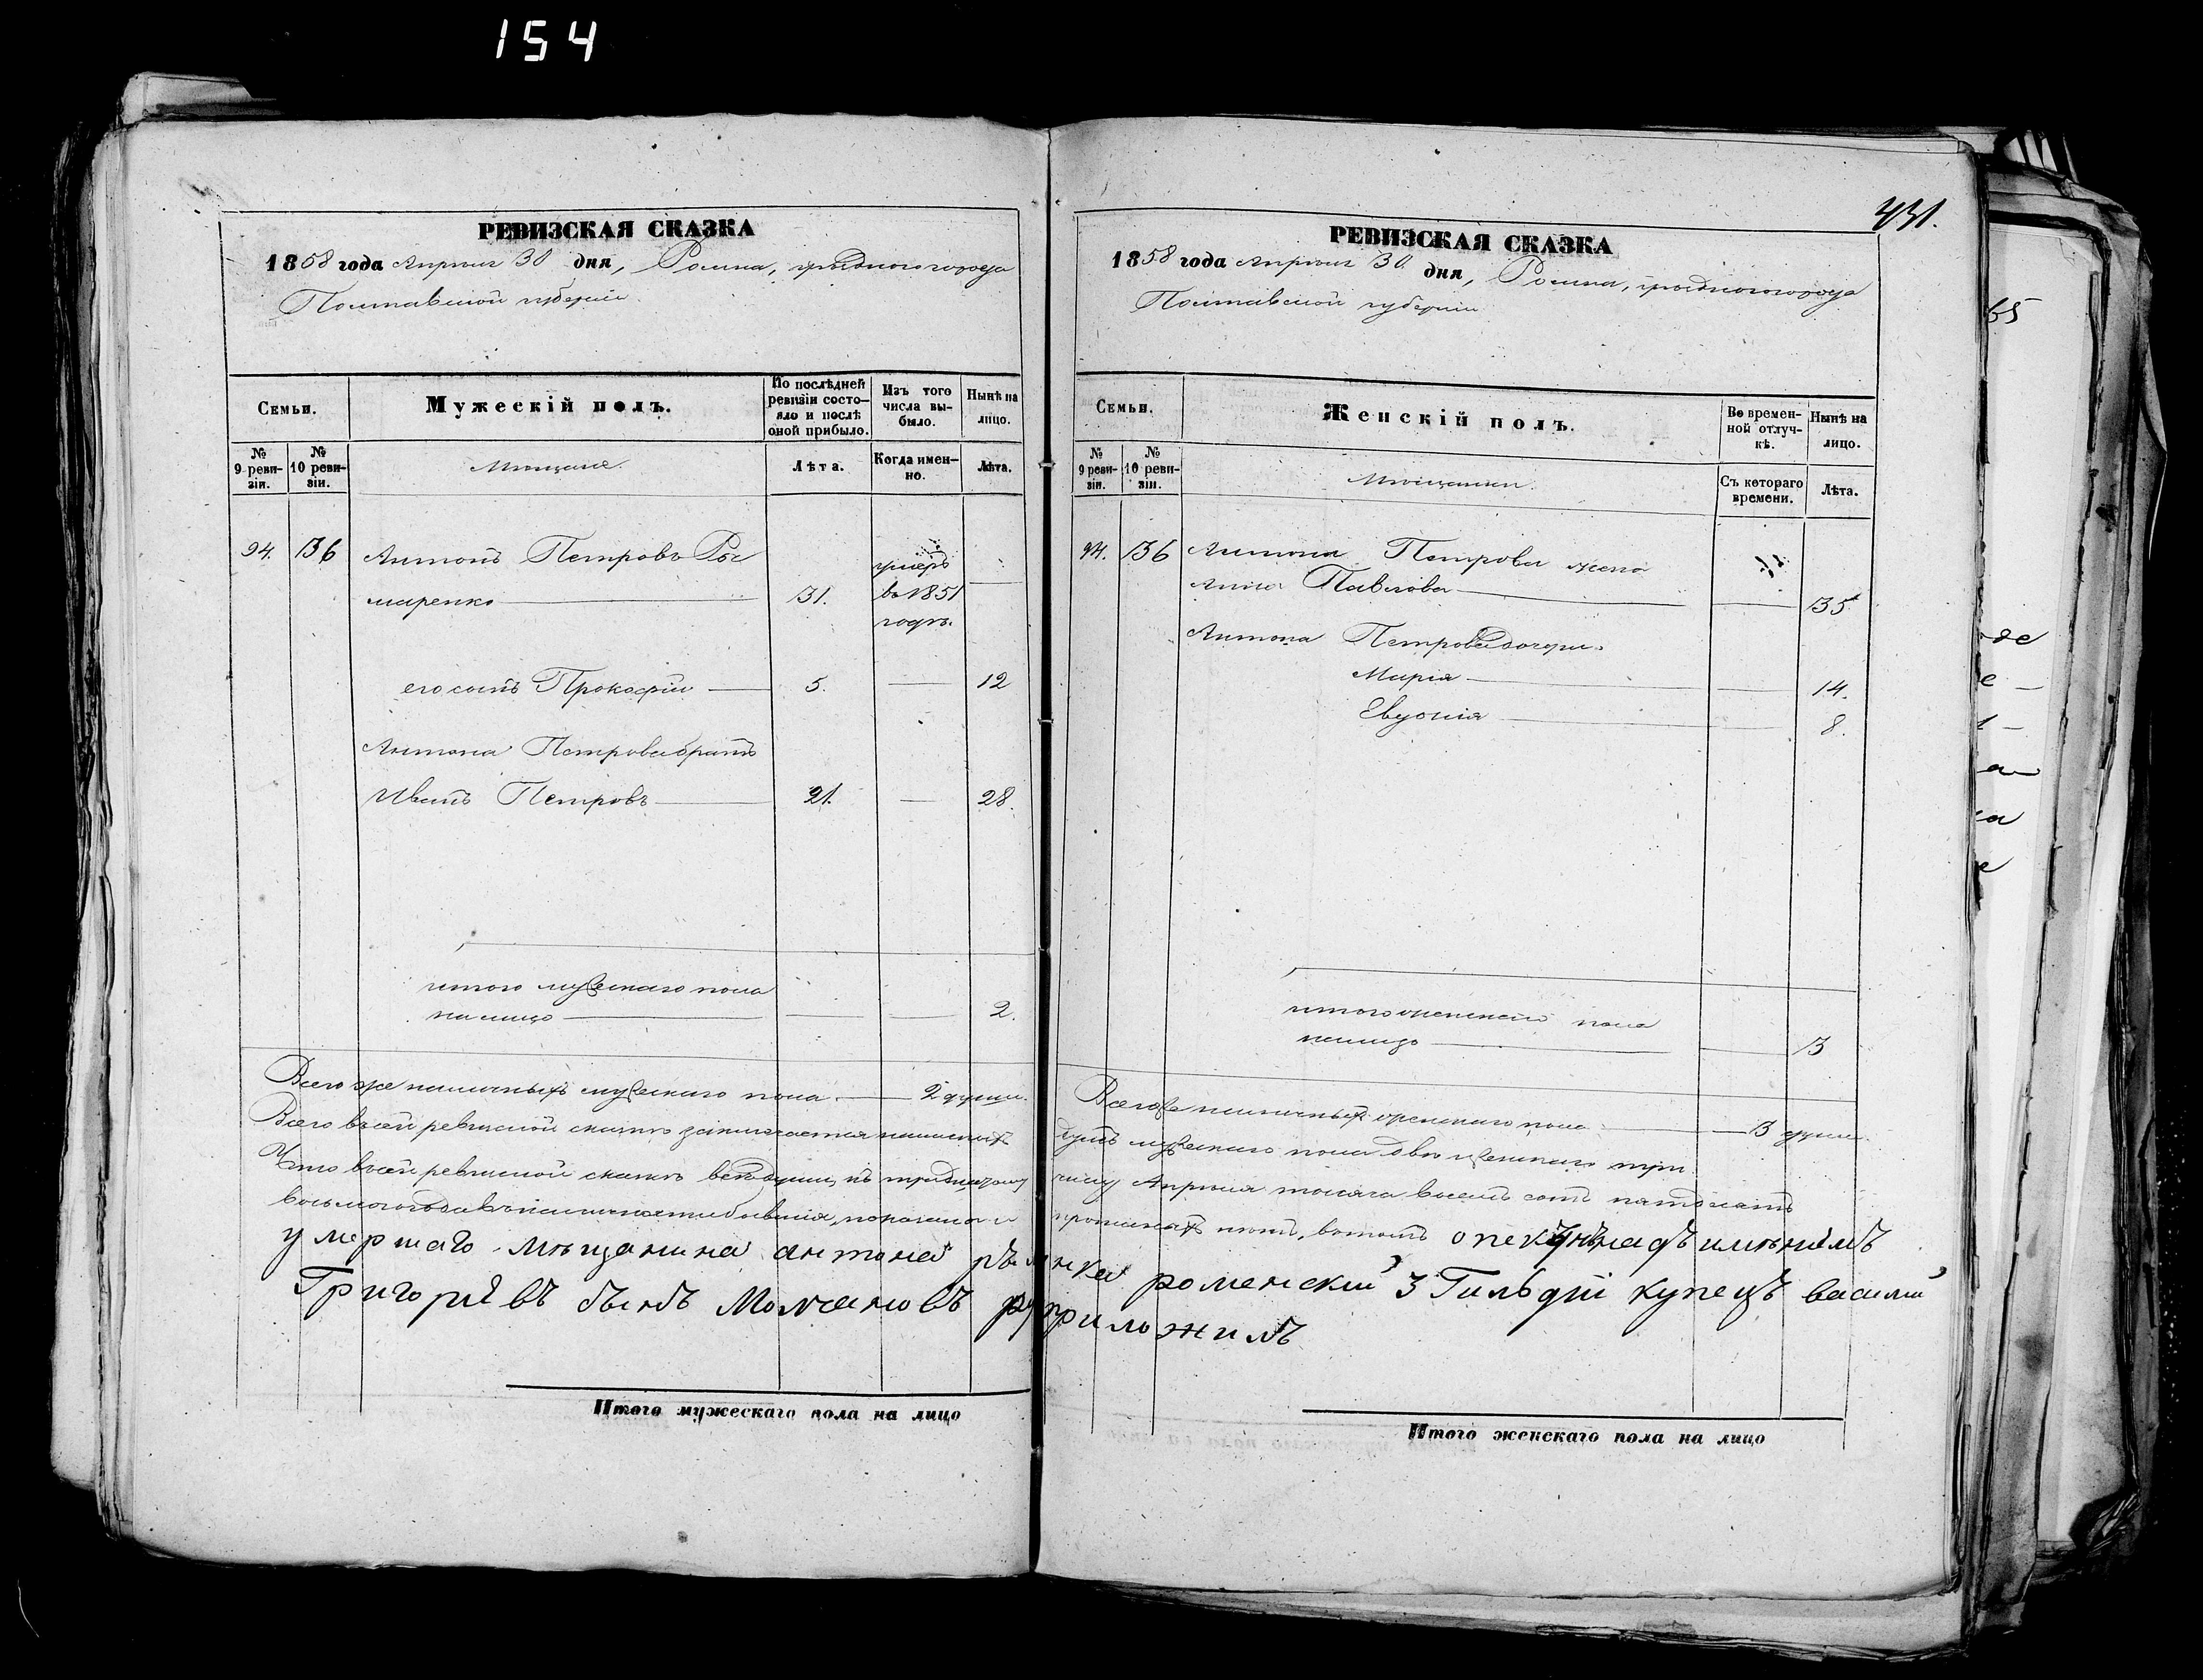 154
РЕВИЗСКАЯ СКАЗКА
1858 года Апреля 30 дня, Ромна, уезднаго города
Полтавской губернии
Семьи.
Мужескій полъ.
По послѣдней ревизіи состояло и послѣ оной прибыло.
Изъ того числа выбыло.
Нынѣ на лицо.
№ 9 ревизіи.
№ 10 ревизіи.
Мещане.
Лѣта.
Когда именно.
Лѣта.
94. 136 Антонъ Петровъ
маренко 31. умеръ в 1851 годѣ.
его сынъ Прокофій 5. 12
Антона Петрова братъ
Иванъ Петровъ 21. 28.
итого мужескаго пола
на лицо 2.
Всего же наличныхъ мужескаго пола 2 души.
Всего в сей ревизской сказке заключается наличныхъ
Что в сей ревизской сказке все души, къ тридцатому
умершаго мѣщанина антона
Григорiевъ сынъ Молчановъ
Итого мужескаго пола на лицо
431.
РЕВИЗСКАЯ СКАЗКА
1858 года Апреля 30 дня, Ромна, уезднаго города
Полтавской губернии
Семьи.
Женскій полъ.
Во временной отлучкѣ.
Нынѣ на лицо.
№ 9 ревизіи.
№ 10 ревизіи.
Мещанки.
Съ котораго времени.
Лѣта.
94. 136 Антона Петрова жена
Анна Павлова 35
Антона Петрова дочери
Марія 14.
Евдокія 8.
итого женскаго пола
на лицо 3
Всего же наличныхъ женскаго пола 3 души.
душъ мужескаго пола две и женскаго три
числу Апреля тысяча восемь сотъ пятдесятъ
опекунъ надъ имениемъ
роменский 3 Гильдіи купецъ василий
приложилъ
Итого женскаго пола на лицо